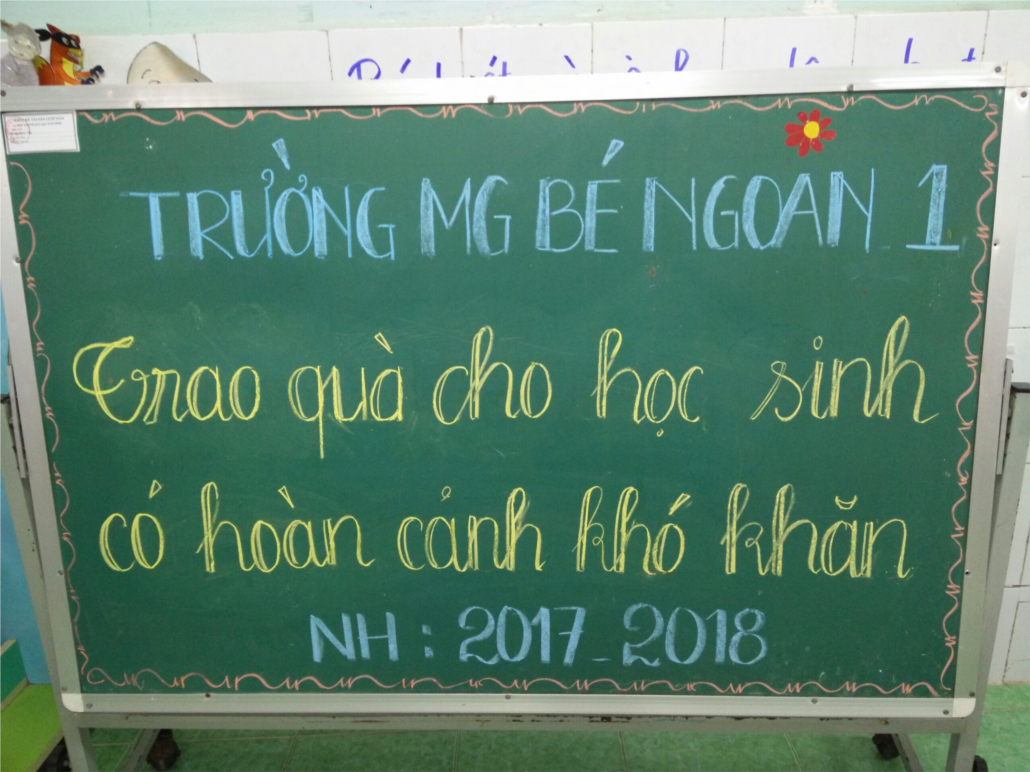 TRƯỜNG MG BÉ NGOAN 1
Trao quà cho học sinh
có hoàn cảnh khó khăn
NH : 2017-2018